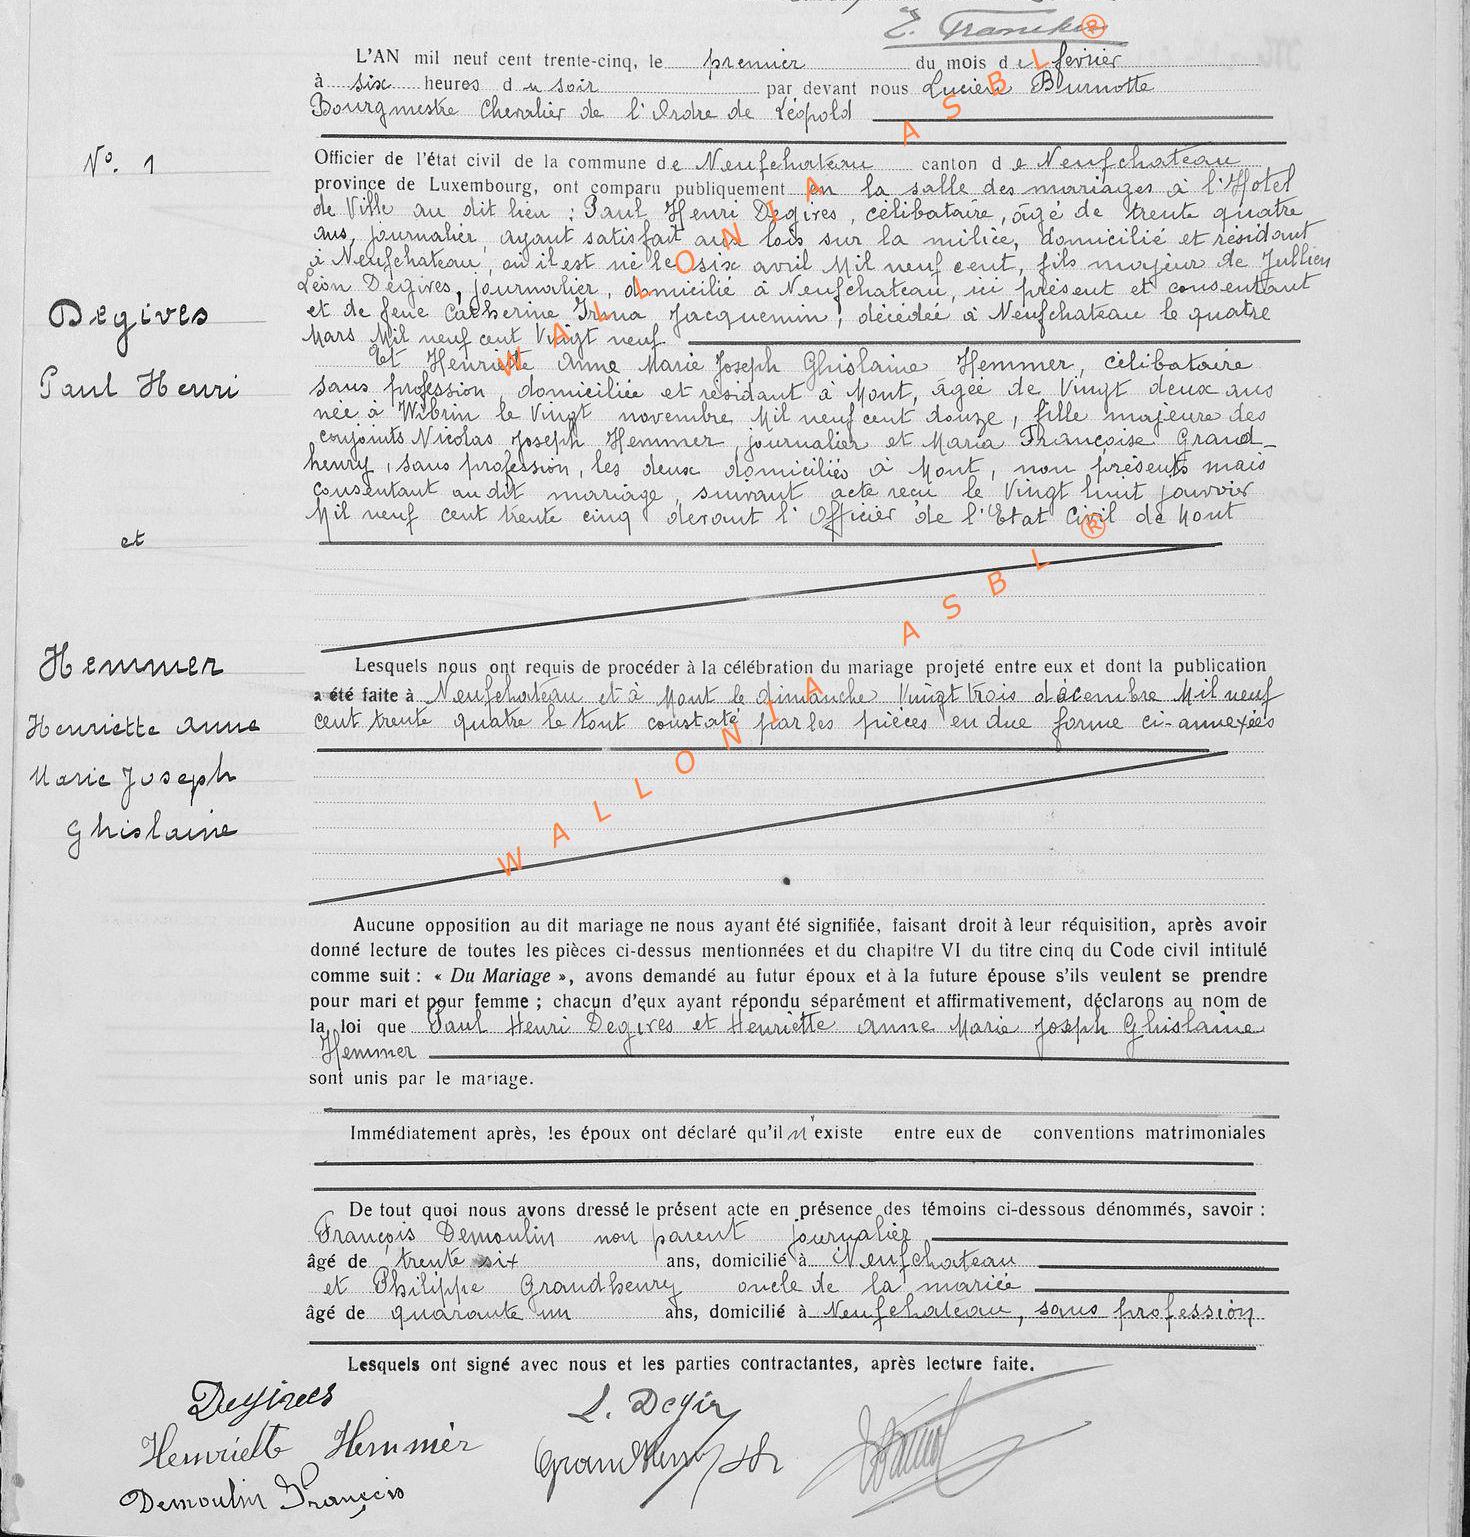 E. Francken
L'AN mil neuf cent trente-cinq, le premier du mois de fevrier
à six heures du soir par devant nous Lucien Burnotte
Bourgmestre Chevalier de l'Ordre de Léopold
N°. 1
Officier de l'état civil de la commune de Neufchateau canton de Neufchateau
province de Luxembourg, ont comparu publiquement en la salle des mariages à l'Hotel
de Ville au dit lieu : Paul Henri Degives, célibataire, âgé de trente quatre
ans, journalier, ayant satisfait aux lois sur la milice, domicilié et résidant
à Neufchateau, où il est né le six avril Mil neuf cent, fils majeur de Jullien
Léon Degives, journalier, domicilié à Neufchateau, ici présent et consentant
et de feue Catherine Irma Jacquemin, décédée à Neufchateau le quatre
Mars Mil neuf cent Vingt neuf
Degives
Paul Henri
et
Hemmer
Henriette Anne
Marie Joseph
Ghislaine
Et Henriette Anne Marie Joseph Ghislaine Hemmer, célibataire
sans profession, domiciliée et résidant à Mont, âgée de Vingt deux ans
née à Wibrin le Vingt novembre Mil neuf cent douze, fille majeure des
conjoints Nicolas Joseph Hemmer, journalier et Maria Françoise Grand-
henry, sans profession, les deux domiciliés à Mont, non présents mais
consentant au dit mariage, suivant acte reçu le Vingt huit janvier
Mil neuf cent trente cinq devant l'Officier de l'Etat Civil de Mont
Lesquels nous ont requis de procéder à la célébration du mariage projeté entre eux et dont la publication
a été faite à Neufchateau et à Mont le dimanche Vingt trois décembre Mil neuf
cent trente quatre le tout constaté par les pièces en due forme ci-annexées
Aucune opposition au dit mariage ne nous ayant été signifiée, faisant droit à leur réquisition, après avoir
donné lecture de toutes les pièces ci-dessus mentionnées et du chapitre VI du titre cinq du Code civil intitulé
comme suit : « Du Mariage », avons demandé au futur époux et à la future épouse s'ils veulent se prendre
pour mari et pour femme ; chacun d'eux ayant répondu séparément et affirmativement, déclarons au nom de
la loi que Paul Henri Degives et Henriette Anne Marie Joseph Ghislaine
Hemmer
sont unis par le mariage.
Immédiatement après, les époux ont déclaré qu'il n'existe entre eux de conventions matrimoniales
De tout quoi nous avons dressé le présent acte en présence des témoins ci-dessous dénommés, savoir :
François Demoulin non parent journalier
âgé de trente six ans, domicilié à Neufchateau
et Philippe Grandhenry oncle de la mariée
âgé de quarante un ans, domicilié à Neufchateau, sans profession
Lesquels ont signé avec nous et les parties contractantes, après lecture faite.
Degives
L. Degiv
Henriette Hemmer
Grandhenry Ph
Demoulin François
WALLONIA ASBL ®
WALLONIA ASBL ®